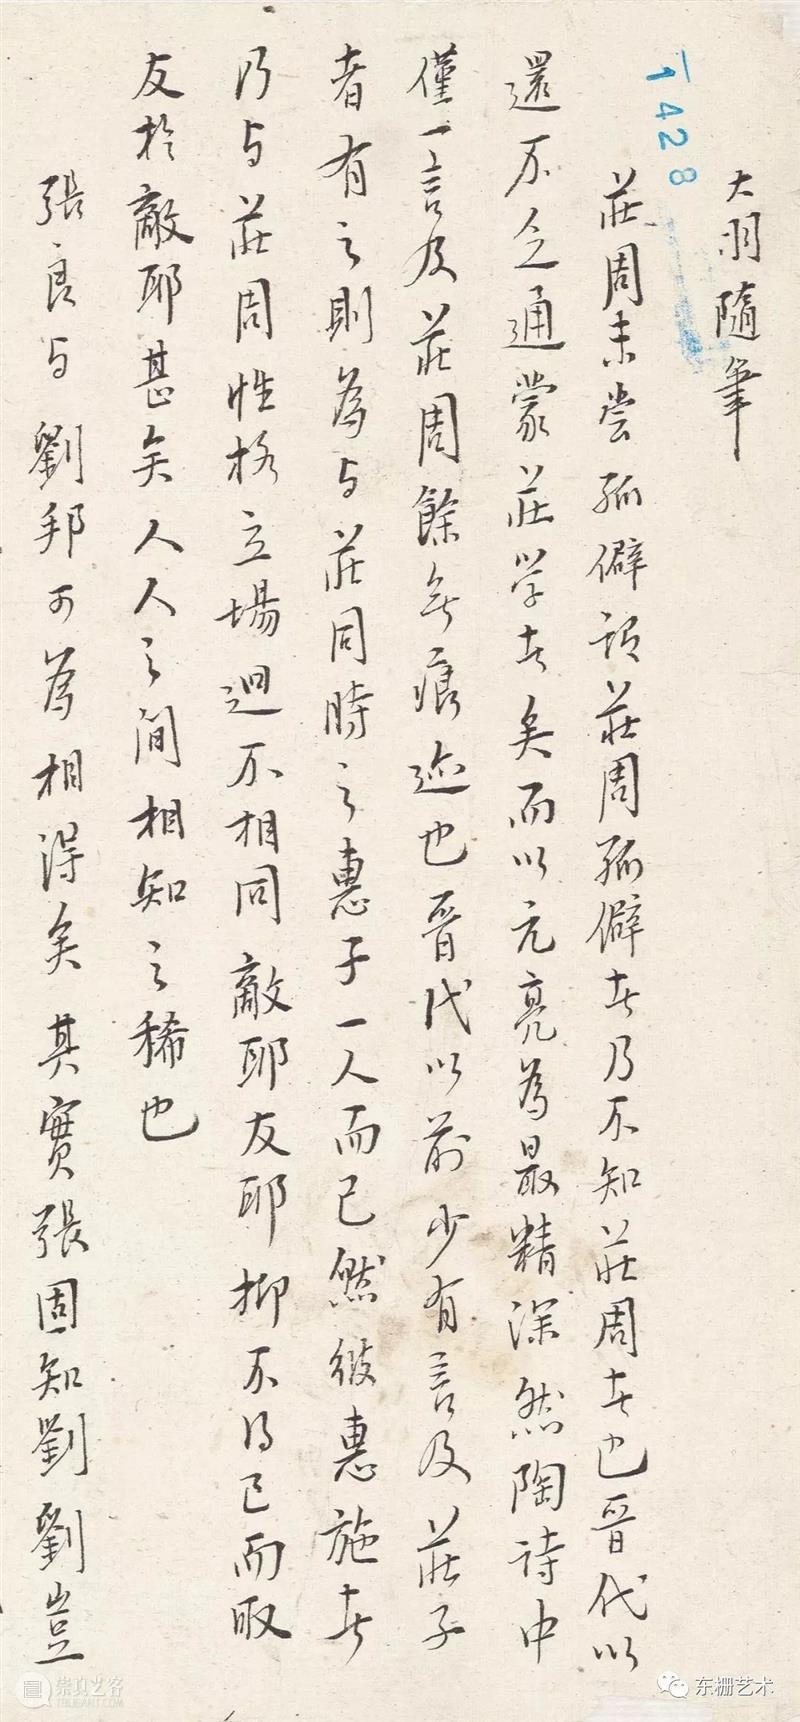 大羽隨筆
莊周未嘗孤僻訝莊周孤僻者乃不知莊周者也晉代以
還不乏通蒙莊學者矣而以元亮為最精深然陶詩中
僅一言及莊周餘無痕迹也晉代以前少有言及莊子
者有之則為与莊同時之惠子一人而已然彼惠施者
乃与莊周性格立場迥不相同敵耶友耶抑不得已而取
友於敵耶甚矣人人之間相知之稀也
張良与劉邦可為相得矣其實張固知劉劉豈
1428
崇真艺客
TRUEART.COM
东栅艺术